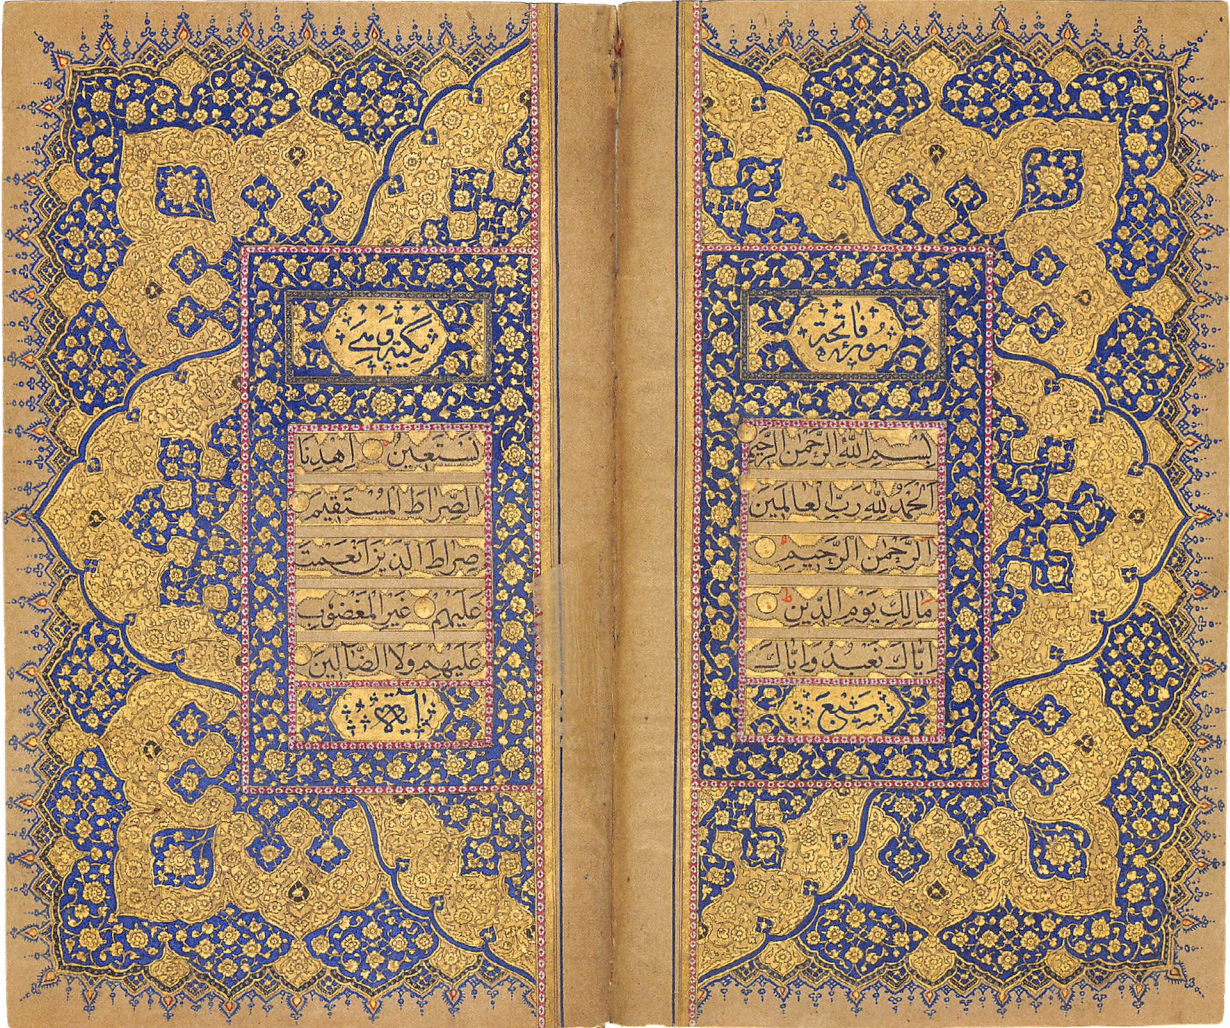 سورة فاتحة
بِسْمِ اللهِ الرَّحْمٰنِ الرَّحِيمِ
اَلْحَمْدُ لِلّٰهِ رَبِّ الْعَالَمِينَ
الرَّحْمٰنِ الرَّحِيمِ
مَالِكِ يَوْمِ الدِّينِ
اِيَّاكَ نَعْبُدُ وَاِيَّاكَ
سَبع
مكية وهي
نَسْتَعِينُ اِهْدِنَا
الصِّرَاطَ الْمُسْتَقِيمَ
صِرَاطَ الَّذِينَ اَنْعَمْتَ
عَلَيْهِمْ غَيْرِ الْمَغْضُوبِ
عَلَيْهِمْ وَلَا الضَّالِّينَ